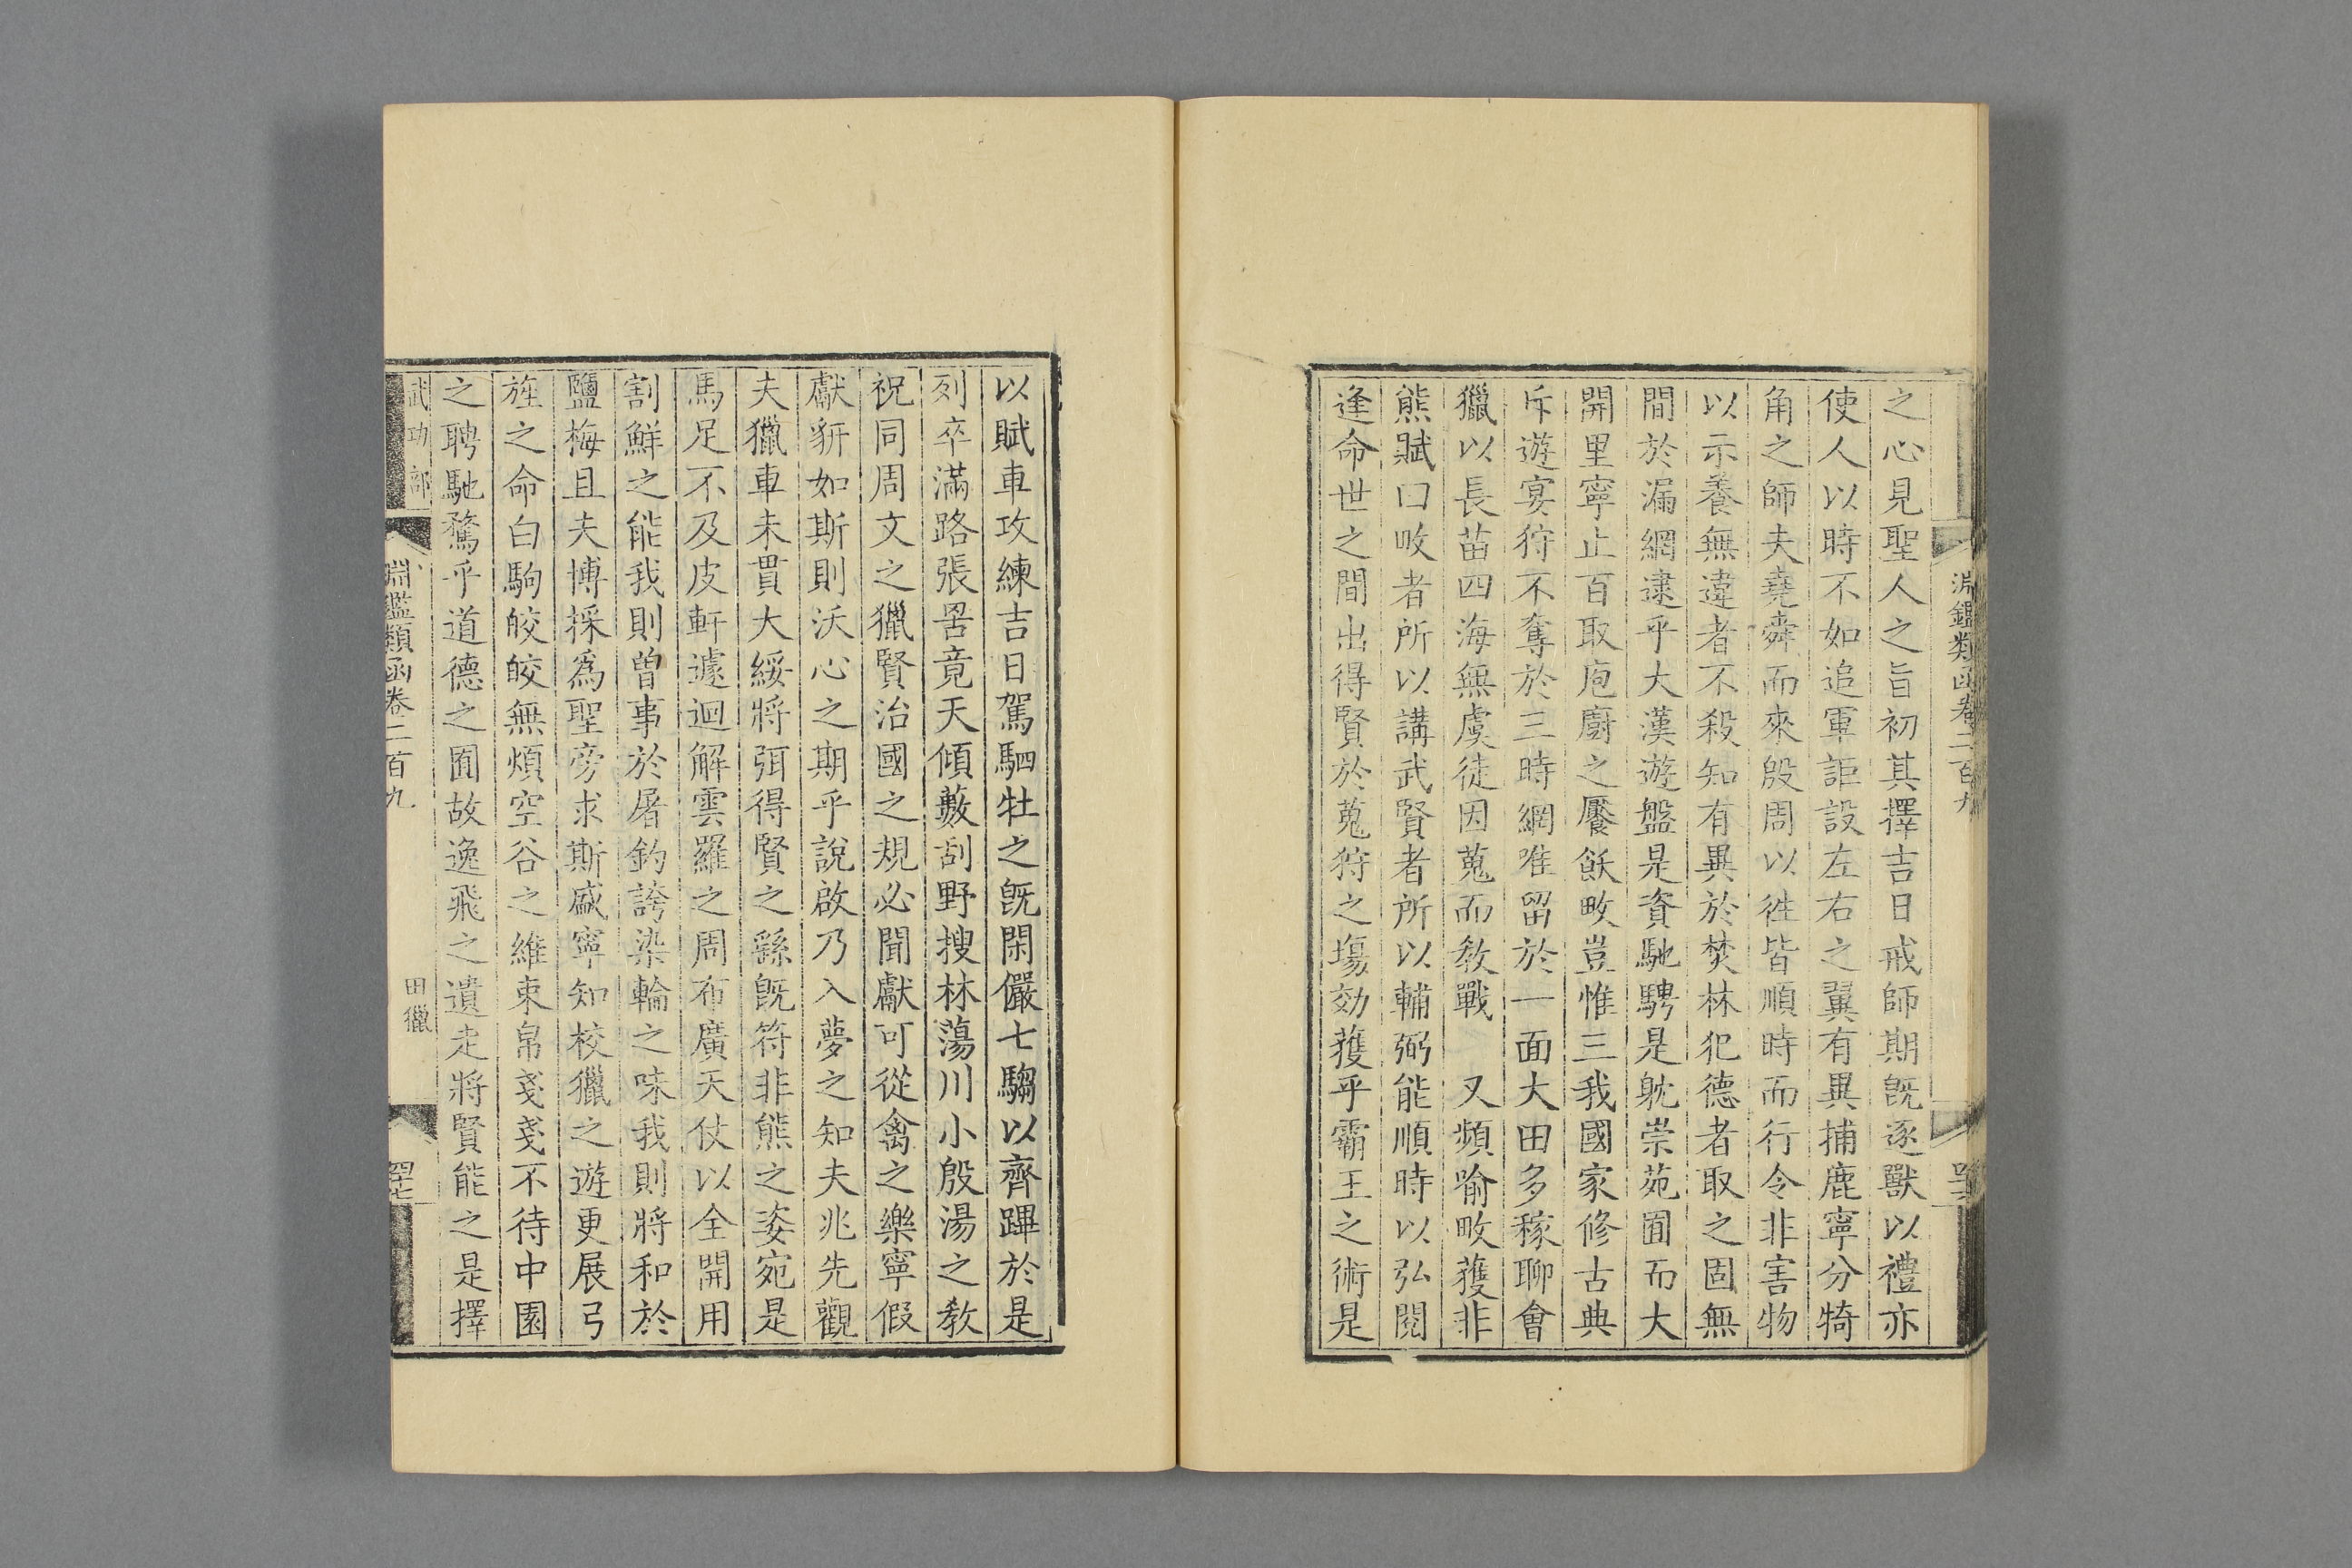 淵鑑類函卷二百九
之心見聖人之旨初其擇吉日戒師期既逐獸以禮亦
使人以時不如追軍詎設左右之翼有異捕鹿寧分犄
角之師夫堯舜而來殷周以徃皆順時而行令非害物
以示養無違者不殺知有異於焚林犯德者取之固無
間於漏網逮乎大漢遊盤是資馳騁是躭崇苑囿而大
開里寧止百取庖廚之饜飫畋豈惟三我國家修古典
斥遊宴狩不奪於三時網唯留於一面大田多稼聊會
獵以長苗四海無虞徒因蒐而教戰　又頻喻畋獲非
熊賦曰畋者所以講武賢者所以輔弼能順時以弘閱
逢命世之間出得賢於蒐狩之塲効獲乎霸王之術是
以賦車攻練吉日駕駟牡之既閑儼七騶以齊蹕於是
列卒滿路張罟竟天傾藪刮野搜林蕩川小殷湯之教
祝同周文之獵賢治國之規必聞獻可從禽之樂寧假
獻豜如斯則沃心之期乎說啟乃入夢之知夫兆先觀
夫獵車未貫大綏將弭得賢之繇既符非熊之姿宛是
馬足不及皮軒遽迴解雲羅之周布廣天仗以全開用
割鮮之能我則曾事於屠釣誇染輪之味我則將和於
鹽梅且夫博採爲聖旁求斯盛寧知校獵之遊更展弓
旌之命白駒皎皎無煩空谷之維束帛戔戔不待中園
之聘馳騖乎道德之囿故逸飛之遺走將賢能之是擇
武功部
淵鑑類函卷二百九
田獵